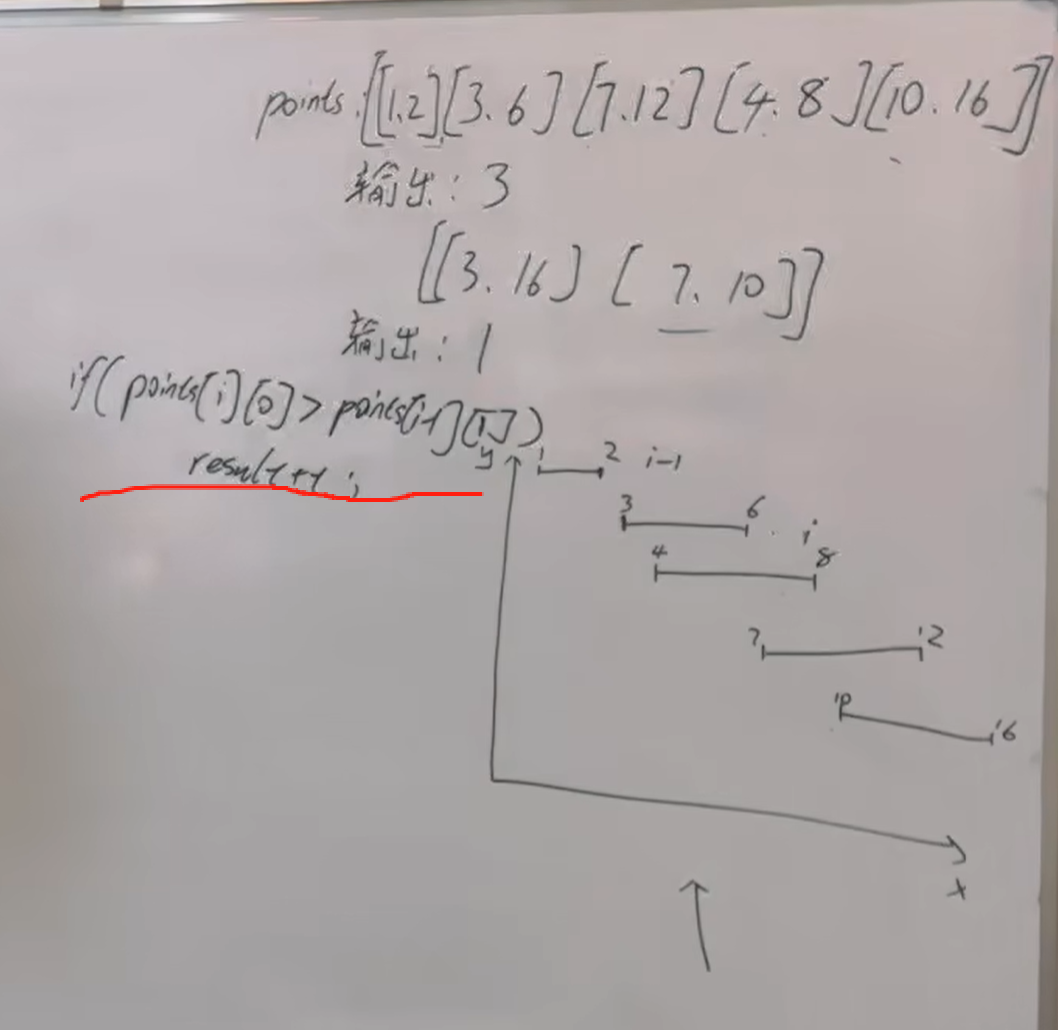 points.[[1.2][3.6][7.12][4.8][10.16]]
输出：3
[[3.16][7.10]]
输出：1
if(points[i][0]>points[i-1][1])
result++;
y
1 2 i-1
3 6 i
4 8
7 12
10 16
x